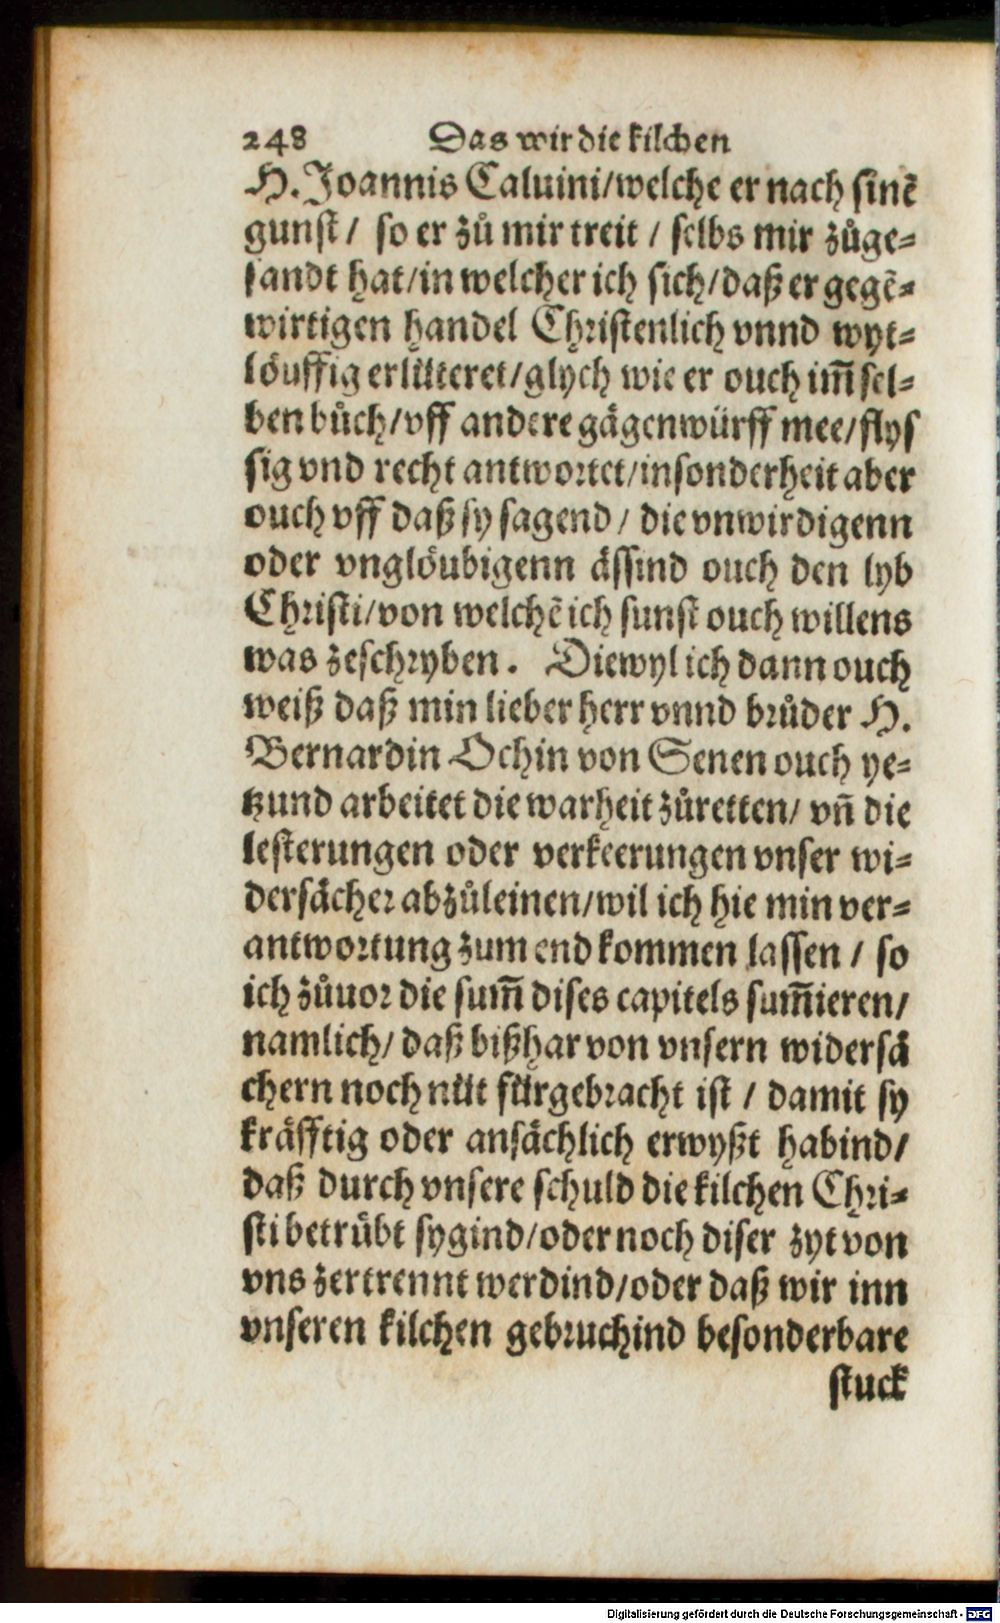 248 Das wir die kilchen
H. Joannis Caluini/welche er nach sinē
gunst/ so er zů mir treit / selbs mir zůge=
sandt hat/in welcher ich sich/daß er gegē=
wirtigen handel Christenlich vnnd wyt=
löuffig erlüteret/glych wie er ouch im̄ sel=
ben bůch/vff andere gägenwürff mee/flys
sig vnd recht antwortet/insonderheit aber
ouch vff daß sy sagend / die vnwirdigenn
oder vnglöubigenn ässind ouch den lyb
Christi/von welchē ich sunst ouch willens
was zeschryben. Diewyl ich dann ouch
weiß daß min lieber herr vnnd brůder H.
Bernardin Ochin von Senen ouch ye=
tzund arbeitet die warheit zůretten/ vn̄ die
lesterungen oder verkeerungen vnser wi=
dersächer abzůleinen/wil ich hie min ver=
antwortung zum end kommen lassen / so
ich zůuor die sum̄ dises capitels sum̄ieren/
namlich/ daß bißhar von vnsern widersä
chern noch nüt fürgebracht ist / damit sy
kräfftig oder ansächlich erwyßt habind/
daß durch vnsere schuld die kilchen Chri=
sti betrübt sygind/oder noch diser zyt von
vns zertrennt werdind/oder daß wir inn
vnseren kilchen gebruchind besonderbare
stuck
Digitalisierung gefördert durch die Deutsche Forschungsgemeinschaft - DFG